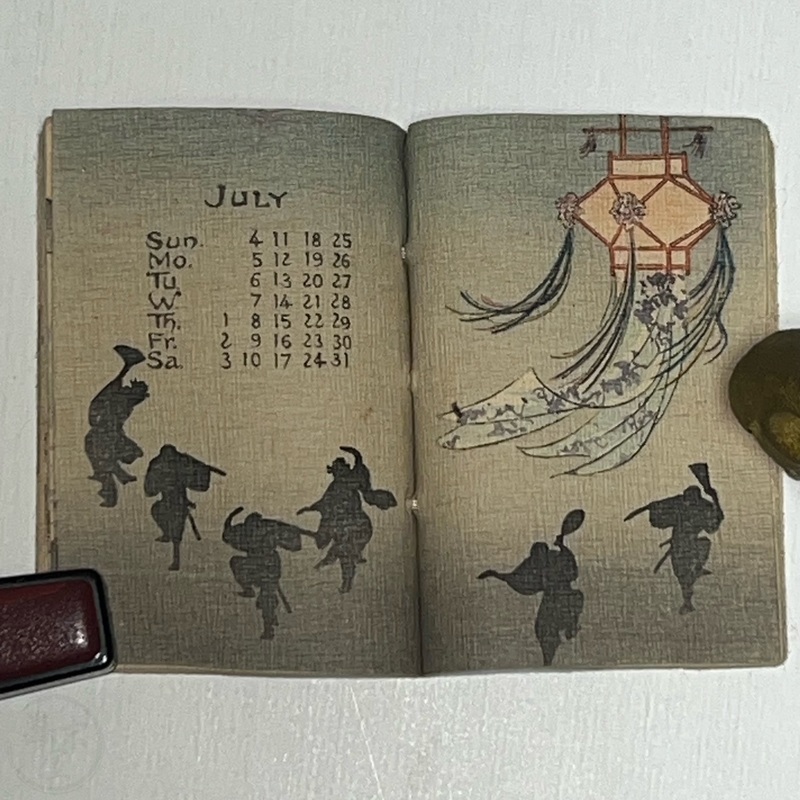 JULY
Sun. 4 11 18 25
Mo. 5 12 19 26
Tu. 6 13 20 27
W. 7 14 21 28
Th. 1 8 15 22 29
Fr. 2 9 16 23 30
Sa. 3 10 17 24 31